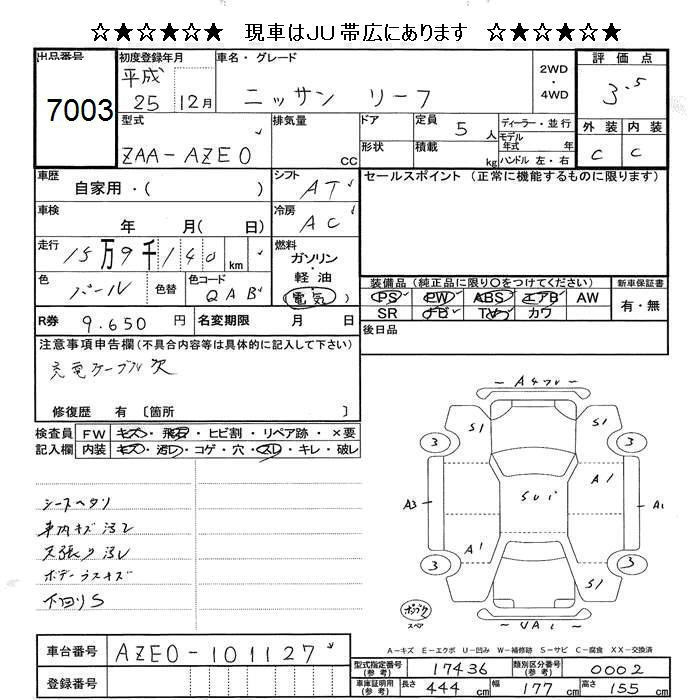 ☆★☆★☆★ 現車はJU帯広にあります ☆★☆★☆★
出品番号 初度登録年月 車名・グレード 評価点
7003 平成 25 12月 ニッサン リーフ 2WD・4WD 3.5
型式 排気量 ドア 定員 5人 ディーラー・並行 外装 内装
ZAA-AZE0 cc 形状 積載 kg モデル年式 年 ハンドル 左・右 C C
車歴 自家用・( ) シフト AT セールスポイント (正常に機能するものに限ります)
車検 年 月( 日) 冷房 AC
走行 15万9千140 km 燃料 ガソリン・軽油 電気
色 パール 色替 色コード QAB 装備品 (純正品に限り○をつけてください) 新車保証書
PS PW ABS エアB AW 有・無
R券 9.650円 名変期限 月 日 SR ナビ TV カワ
注意事項申告欄(不具合内容等は具体的に記入して下さい) 後日品
充電ケーブル欠
修復歴 有 〔箇所 〕
検査員 FW キズ・飛石・ヒビ割・リペア跡・×要
記入欄 内装 キズ・汚レ・コゲ・穴・スレ・キレ・破レ
シートヘタリ
車内キズ汚レ
天張り汚レ
ボデーラスキズ
下回りS
A
3 S1 S1 3
A3 A1 A1
A1
3 S1 3
スペア
A-キズ E-エクボ U-凹み W-補修跡 S-サビ C-腐食 XX-交換済
車台番号 AZE0-101127 型式指定番号(参考) 17436 類別区分番号(参考) 0002
登録番号 車庫証明用(参考) 長さ 444cm 幅 177cm 高さ 155cm